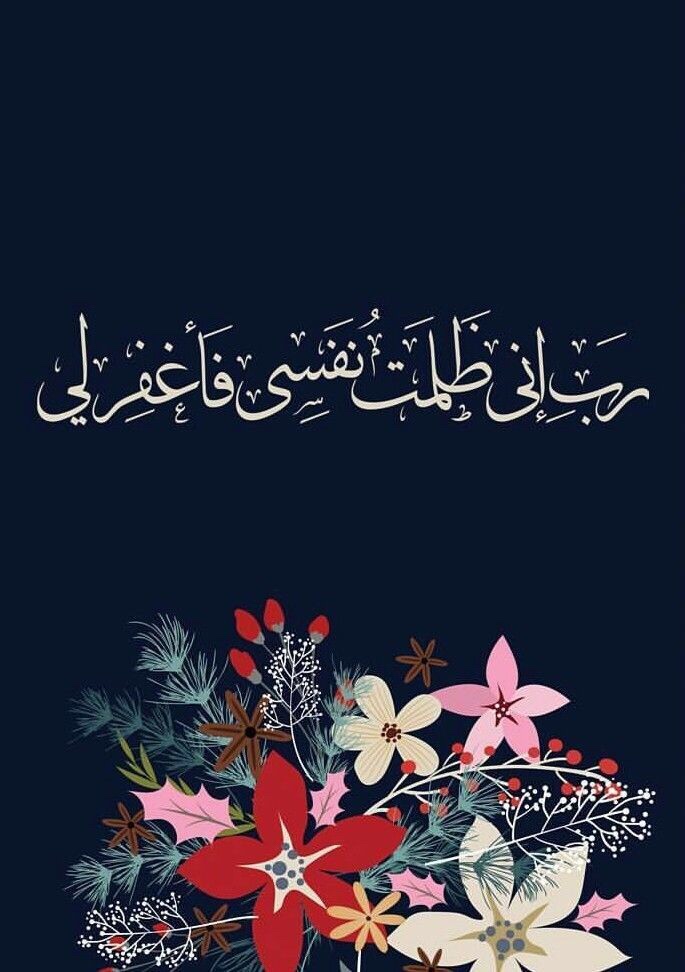 رَبِ إِنى ظَلَمَتُ نفَسِى فَأغفِر لي